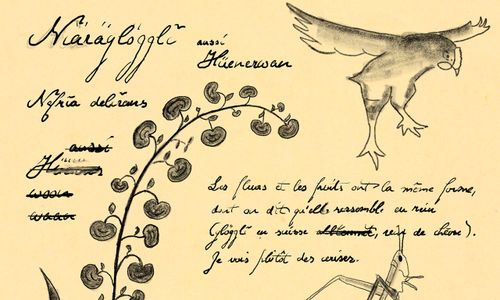 Niäräglögglî aussi
Hüenerwan
Nefria delirans
aussi
Les fleurs et les fruits ont la même forme,
dont on dit qu'elle ressemble au rein
(glöggli en suisse allemand, rein de chèvre).
Je vois plutôt des cerises.